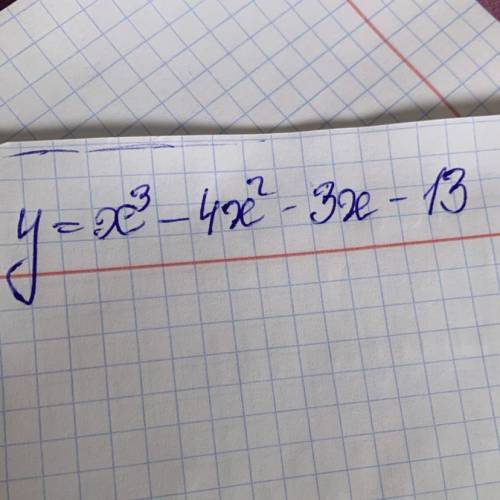 y = x³ - 4x² - 3x - 13